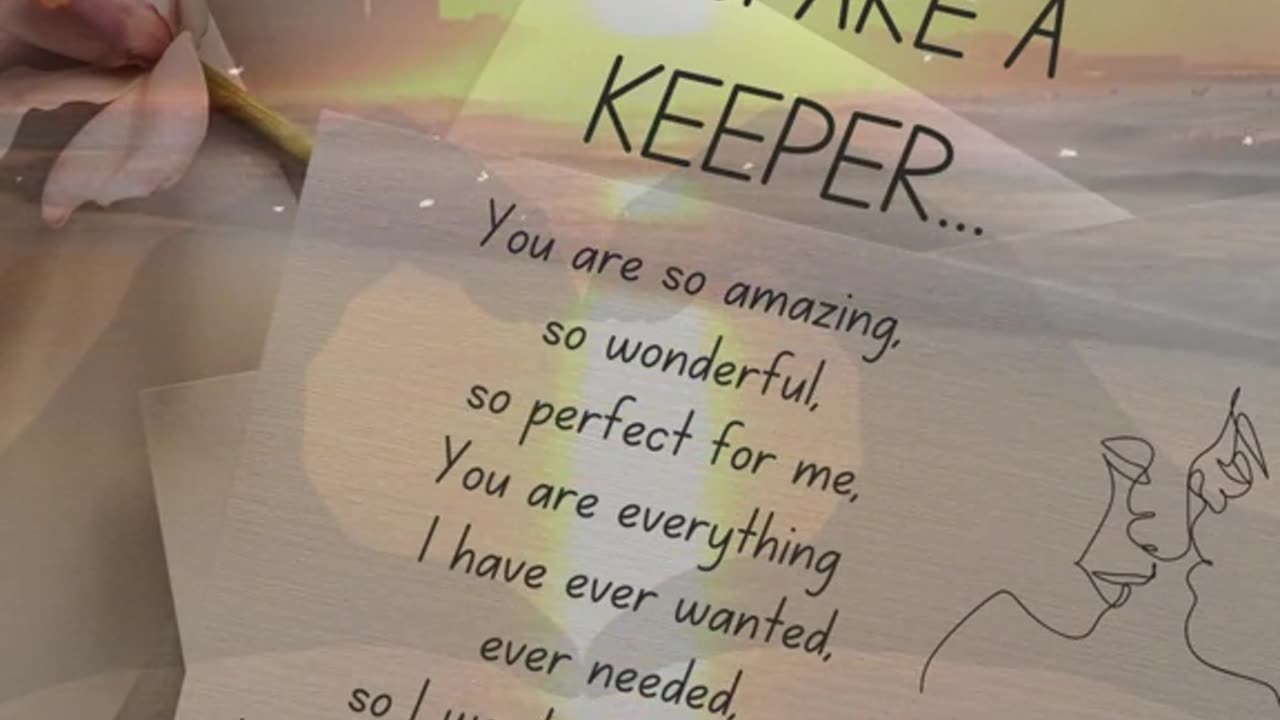 A
KEEPER...
You are so amazing,
so wonderful,
so perfect for me,
You are everything
I have ever wanted,
ever needed,
so I